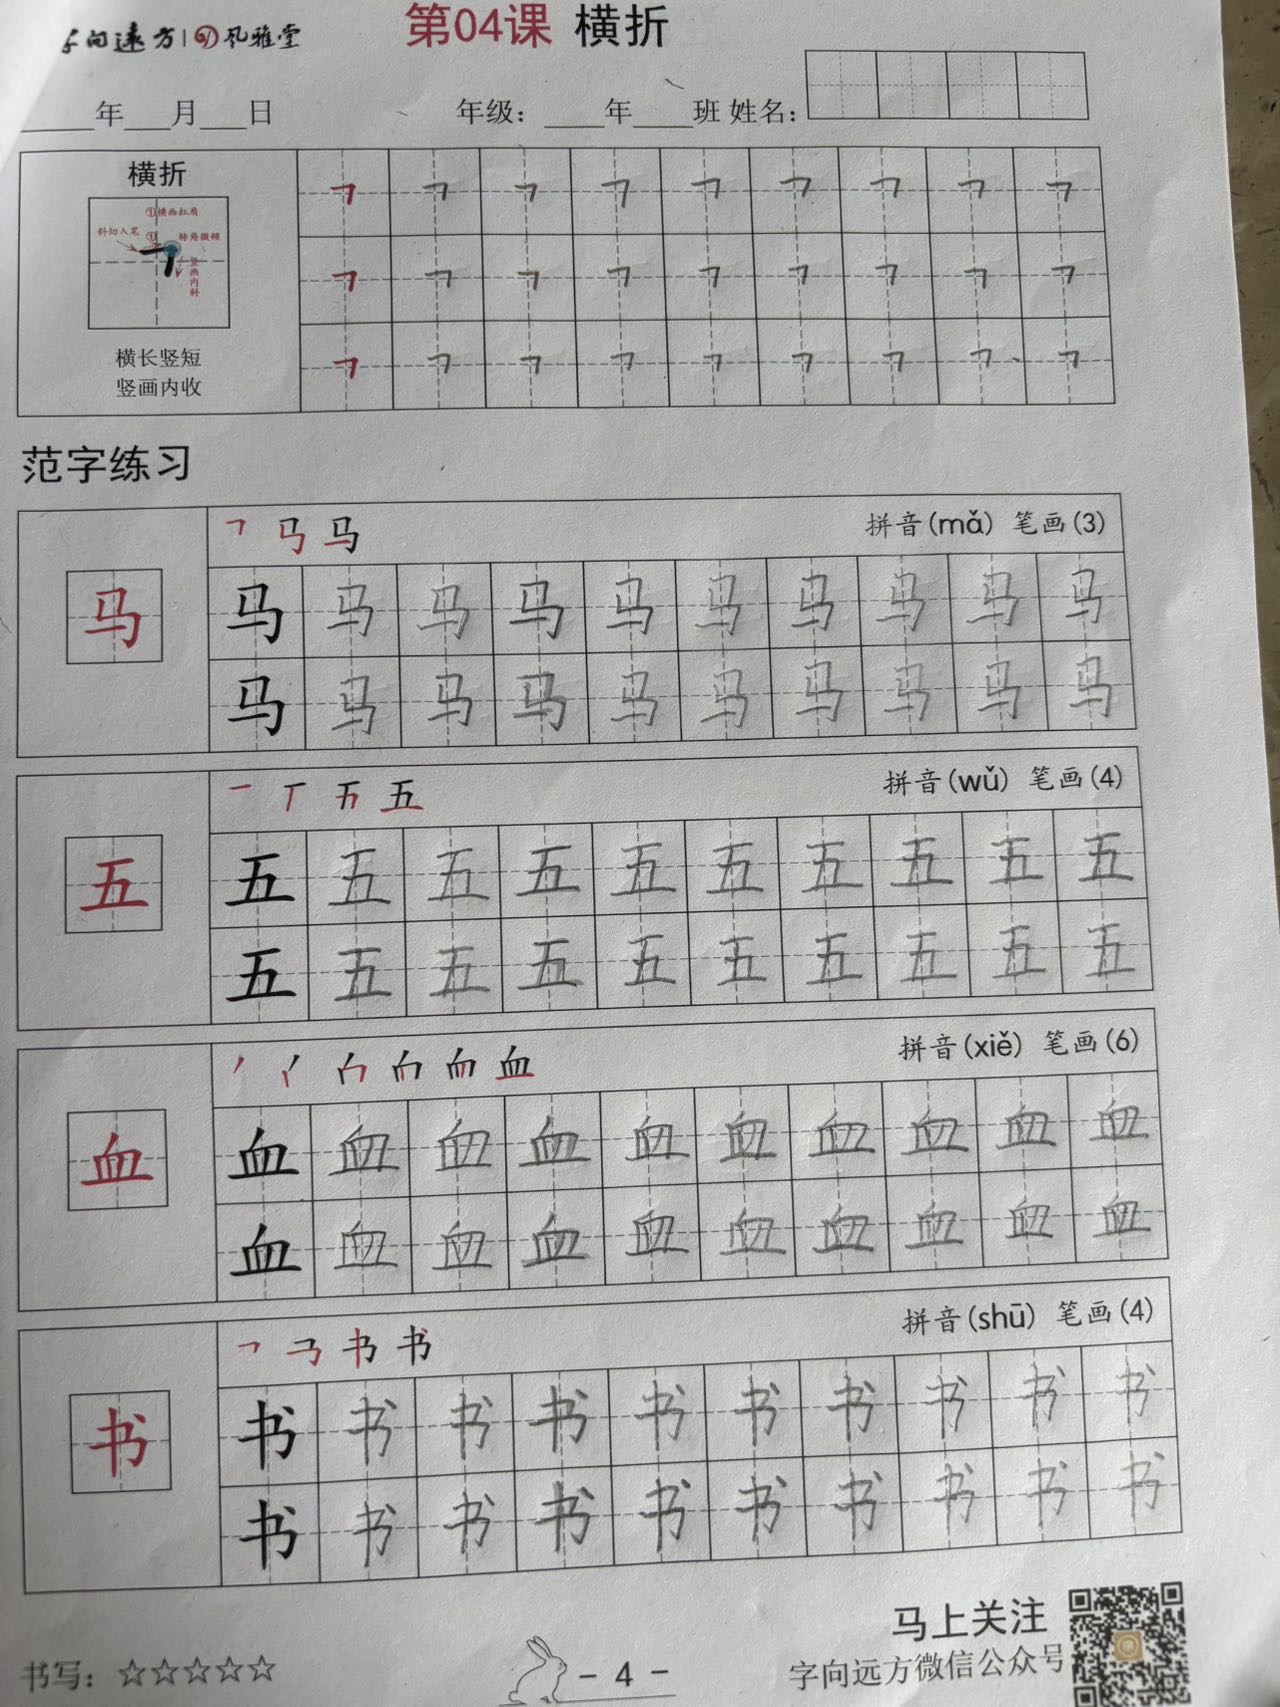 字向远方 | 风雅堂 第04课 横折
____年___月___日 年级：____年____班 姓名：
横折
①横画扛肩
斜切入笔 ① 转角微顿
竖画内斜
横长竖短
竖画内收
㇕ ㇕ ㇕ ㇕ ㇕ ㇕ ㇕ ㇕ ㇕
㇕ ㇕ ㇕ ㇕ ㇕ ㇕ ㇕ ㇕ ㇕
㇕ ㇕ ㇕ ㇕ ㇕ ㇕ ㇕ ㇕ ㇕
范字练习
马 拼音(mǎ) 笔画(3)
马
马 马 马 马 马 马 马 马 马 马
马 马 马 马 马 马 马 马 马 马
五 拼音(wǔ) 笔画(4)
五
五 五 五 五 五 五 五 五 五 五
五 五 五 五 五 五 五 五 五 五
血 拼音(xiě) 笔画(6)
血
血 血 血 血 血 血 血 血 血 血
血 血 血 血 血 血 血 血 血 血
书 拼音(shū) 笔画(4)
书
书 书 书 书 书 书 书 书 书 书
书 书 书 书 书 书 书 书 书 书
马上关注
书写：☆☆☆☆☆ - 4 - 字向远方微信公众号